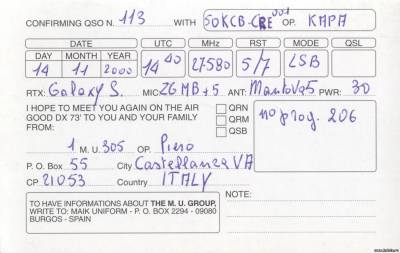 CONFIRMING QSO N. 113 WITH 50KCB-CRE001 OP. KAPA
DATE UTC MHz RST MODE QSL
DAY MONTH YEAR
14 11 2000 14 40 27580 5/7 LSB
RTX: Galaxy S. MIC: 26 MB+5 ANT: Mantova5 PWR: 30
I HOPE TO MEET YOU AGAIN ON THE AIR
GOOD DX 73' TO YOU AND YOUR FAMILY
FROM:
QRN
QRM
QSB
no prog. 206
1 M.U. 305 OP. Piero
P. O. Box 55 City Castellanza VA
CP 21053 Country ITALY
TO HAVE INFORMATIONS ABOUT THE M. U. GROUP,
WRITE TO: MAIK UNIFORM - P. O. BOX 2294 - 09080
BURGOS - SPAIN
NOTE: